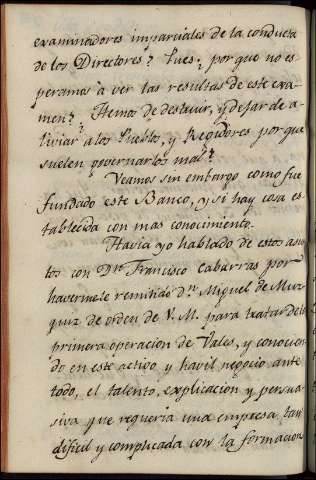 examinadores imparciales de la conducta
de los Directores? Pues, porque no es-
peramos à ver las resultas de este exa-
men? Hemos de destruir, y dejar de a-
liviar a los Pueblos, y Regidores porque
suelen governarlos mal?
Veamos sin embargo como fue
fundado este Banco, y si hay cosa es-
tablecida con mas conocimiento.
Havia yo hablado de estos asun
tos con Dn. Francisco Cabarrus por
havermele remitido Dn. Miguel de Muz-
quiz de orden de V. M. para tratar de la
primera operacion de Vales, y conocien
do en este activo y havil negocio ante
todo, el talento, explicacion y persua
siva que requeria una empresa tan
dificil y complicada con la formacion